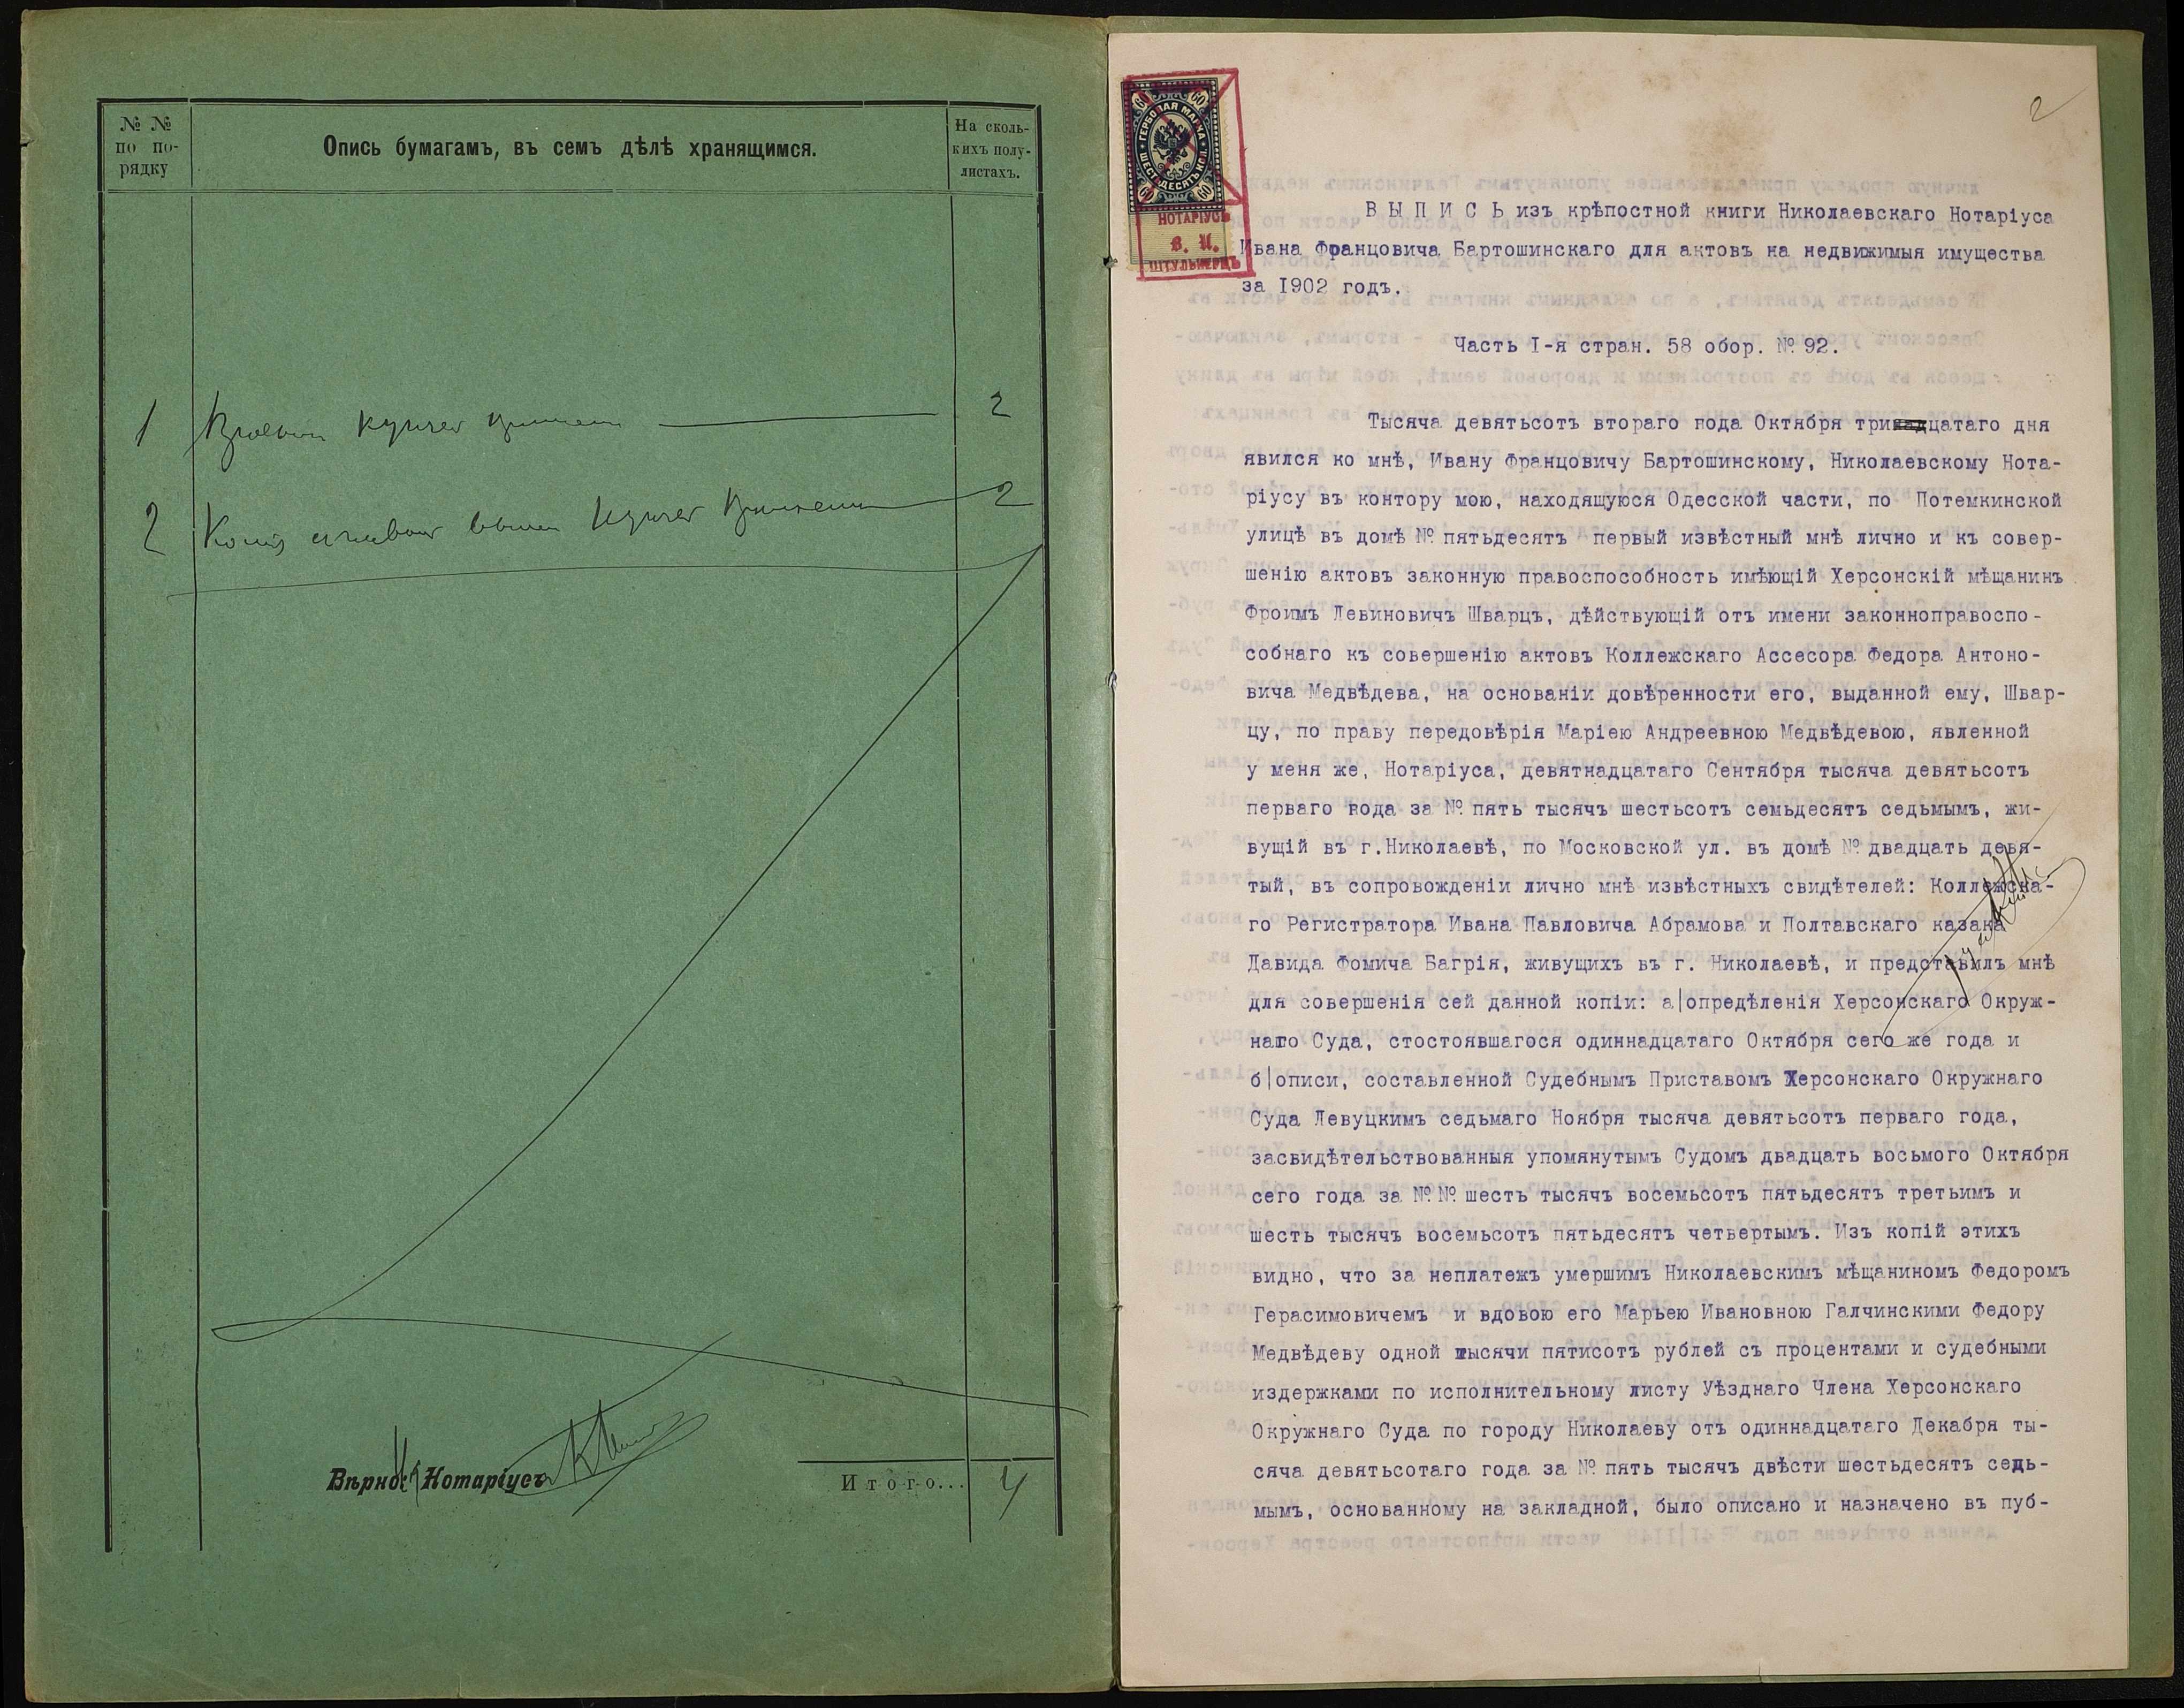 № №
по по-
рядку
Опись бумагамъ, въ семъ дѣлѣ хранящимся.
На сколь-
кихъ полу-
листахъ.
1
2
2
2
Вѣрно: Нотаріусъ
Итого...
4
2
60
60
ГЕРБОВАЯ МАРКА
ШЕСТЬДЕСЯТЪ КОП.
60
60
НОТАРІУСЪ
В. И.
ШТУЛЬКЕРЦЪ
В Ы П И С Ь изъ крѣпостной книги Николаевскаго Нотаріуса
Ивана Францовича Бартошинскаго для актовъ на недвижимыя имущества
за I902 годъ.
Часть I-я стран. 58 обор. № 92.
Тысяча девятьсотъ втораго года Октября тринадцатаго дня
явился ко мнѣ, Ивану Францовичу Бартошинскому, Николаевскому Нота-
ріусу въ контору мою, находящуюся Одесской части, по Потемкинской
улицѣ въ домѣ № пятьдесятъ первый извѣстный мнѣ лично и къ совер-
шенію актовъ законную правоспособность имѣющій Херсонскій мѣщанинъ
Фроимъ Левиновичъ Шварцъ, дѣйствующій отъ имени законноправоспо-
собнаго къ совершенію актовъ Коллежскаго Ассесора Федора Антоно-
вича Медвѣдева, на основаніи довѣренности его, выданной ему, Швар-
цу, по праву передовѣрія Маріею Андреевною Медвѣдевою, явленной
у меня же, Нотаріуса, девятнадцатаго Сентября тысяча девятьсотъ
перваго года за № пять тысячъ шестьсотъ семьдесятъ седьмымъ, жи-
вущій въ г.Николаевѣ, по Московской ул. въ домѣ № двадцать девя-
тый, въ сопровожденіи лично мнѣ извѣстныхъ свидѣтелей: Коллежска-
го Регистратора Ивана Павловича Абрамова и Полтавскаго казака
Давида Фомича Багрія, живущихъ въ г. Николаевѣ, и представилъ мнѣ
для совершенія сей данной копіи: а|опредѣленія Херсонскаго Окруж-
наго Суда, стостоявшагося одиннадцатаго Октября сего же года и
б|описи, составленной Судебнымъ Приставомъ Херсонскаго Окружнаго
Суда Левуцкимъ седьмаго Ноября тысяча девятьсотъ перваго года,
засвидѣтельствованныя упомянутымъ Судомъ двадцать восьмого Октября
сего года за №№ шесть тысячъ восемьсотъ пятьдесятъ третьимъ и
шесть тысячъ восемьсотъ пятьдесятъ четвертымъ. Изъ копій этихъ
видно, что за неплатежъ умершимъ Николаевскимъ мѣщаниномъ Федоромъ
Герасимовичемъ и вдовою его Марьею Ивановною Галчинскими Федору
Медвѣдеву одной тысячи пятисотъ рублей съ процентами и судебными
издержками по исполнительному листу Уѣзднаго Члена Херсонскаго
Окружнаго Суда по городу Николаеву отъ одиннадцатаго Декабря ты-
сяча девятьсотаго года за № пять тысячъ двѣсти шестьдесятъ седь-
мымъ, основанному на закладной, было описано и назначено въ пуб-